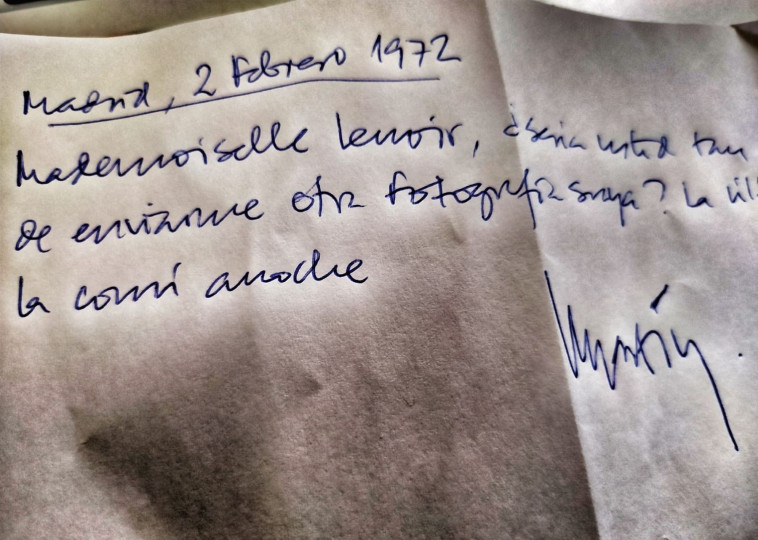 Madrid, 2 Febrero 1972
Mademoiselle Lenoir, ¿sería usted tan
de enviarme otra fotografía suya? La
la comí anoche